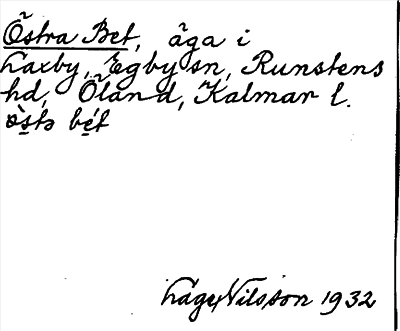 Östra Bet, äga i
Laxby, Egby sn, Runstens
hd, Öland, Kalmar l.
ò̱stə bé̱t
Håge Nilsson 1932